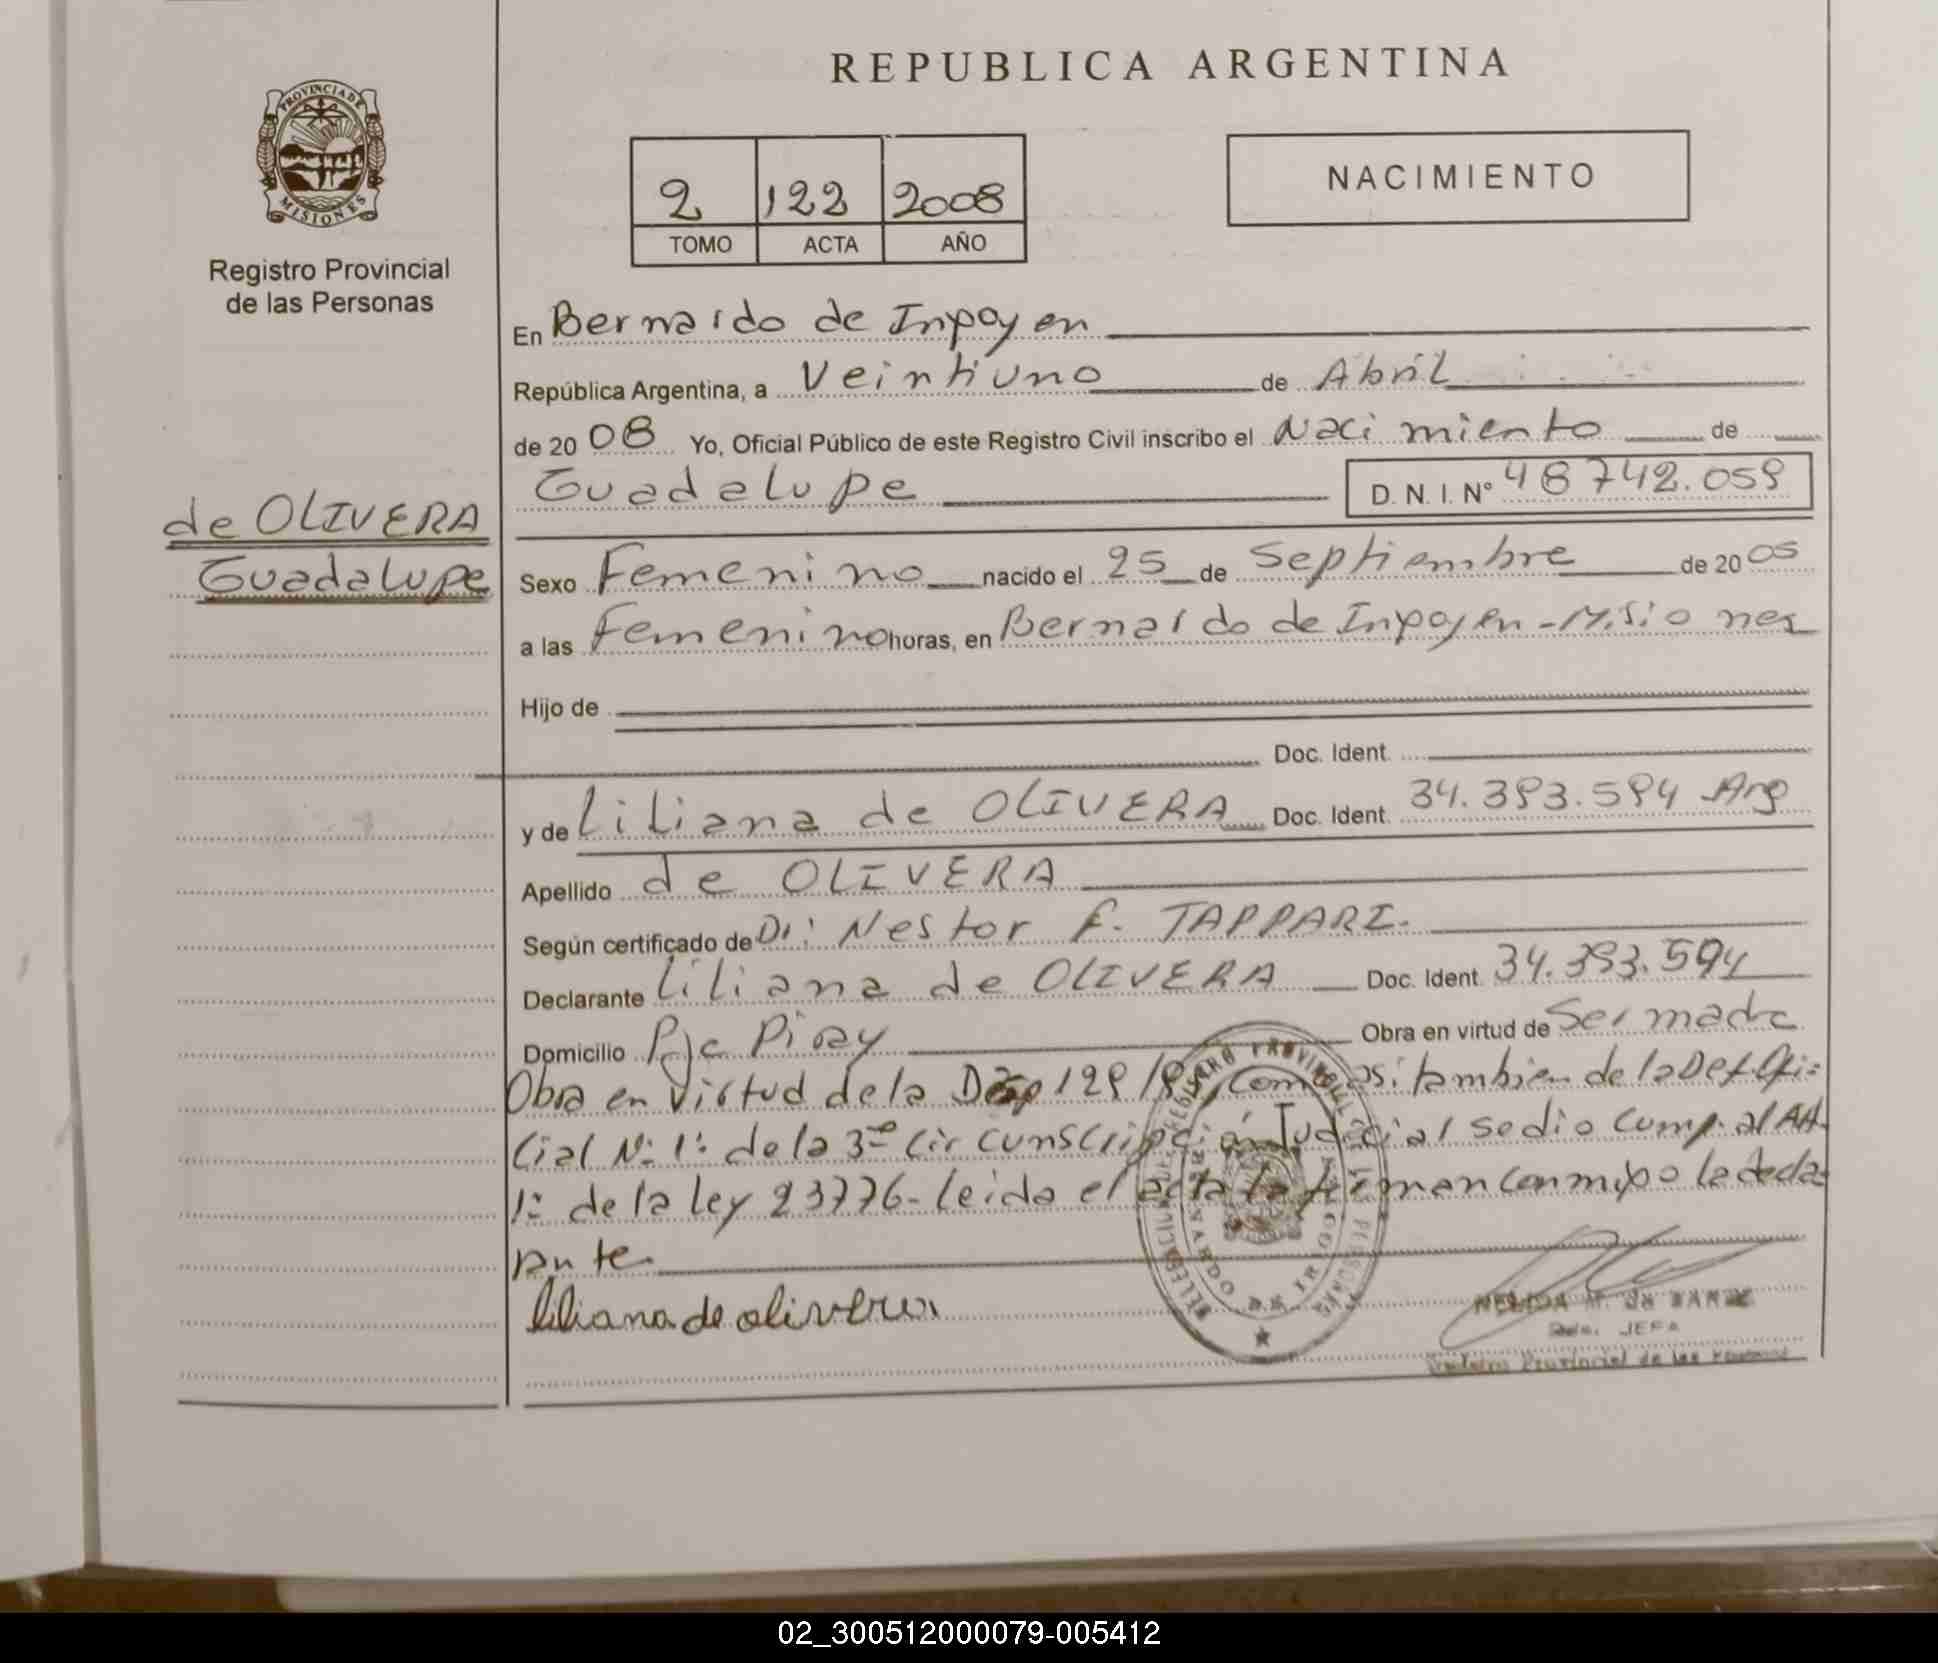 REPUBLICA ARGENTINA
PROVINCIA DE
MISIONES
Registro Provincial
de las Personas
2 122 2008
TOMO ACTA AÑO
NACIMIENTO
En Bernardo de Irigoyen
República Argentina, a Veintiuno de Abril
de 2008 Yo, Oficial Público de este Registro Civil inscribo el Nacimiento de
Guadalupe D. N. I. Nº 48742.059
de OLIVERA
Guadalupe
Sexo Femenino nacido el 25 de Septiembre de 2005
a las Femenino horas, en Bernardo de Irigoyen - Misiones
Hijo de
Doc. Ident.
y de Liliana de OLIVERA Doc. Ident. 34.393.594 Arg
Apellido de OLIVERA
Según certificado de Dr: Nestor F. TAPPARI.
Declarante Liliana de OLIVERA Doc. Ident. 34.393.594
Domicilio Pje Piray Obra en virtud de Ser madre
Obra en virtud de la Disp 129 como asi tambien de la Def. Ofi=
cial Nº 1º de la 3ª Circunscripción Judicial se dio cump. al Art.
1º de la ley 23776 - leida el acta la firman conmigo la decla=
rante
liliana de olivera
JEFA
Registro Provincial de las Personas
02_300512000079-005412